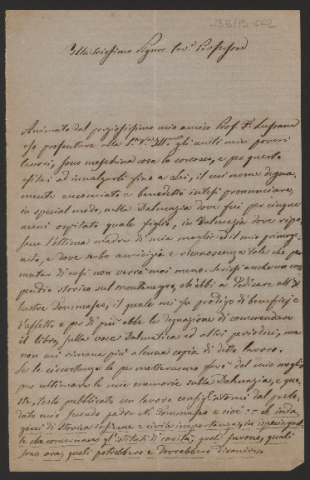 Illustrissimo Signor Cav.e Professore
Animato dal pregiatissimo mio amico Prof. F. Lanfranc
oso presentare alla S.a V.a Ill.ma gli umili miei poveri
lavori, sono meschina cosa lo conosco, e per questo
esitai ad innalzarli fino a Lei, il cui nome degna-
mente encomiato e benedetto intesi pronunciare,
in special modo, nella Dalmazia dove fui per cinque
anni ospitato quale figlio, in Dalmazia dove ripo-
sano l'ottima madre di mia moglie ed il mio primoge-
nito, e dove serbo amicizia e riconoscenza tale che per
mutar di casi non verrà mai meno. Scrissi anche un com-
pendio storico sul Montenegro, ch'ebbi a dedicare all'il-
lustre Tommaseo, il quale mi fu prodigo di beneficj e
d'affetto e per di più ebbe la degnazione di commendare
il libro, sulla Voce Dalmatica ed altri periodici, ma
non mi rimane più alcuna copia di detto lavoro.
Se le circostanze lo permetteranno farò del mio meglio
per ultimare le mie memorie sulla Dalmazia, e que-
sto, tosto pubblicato un lavoro consigliatomi dal prelo-
dato mio secondo padre il Tommaseo e cioè: Le inda-
gini di storica insieme e civile importanza, in ispecie quel-
le che concernono gl'istituti di carità, quali furono, quali
sono ora, quali potrebbero e dovrebbero divenire.